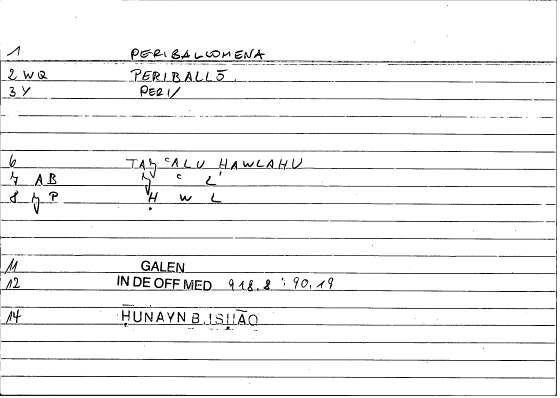 1 PERIBALLOMENA
2 WQ PERIBALLŌ
3 Y PERI/
6 TAǦʿALU ḤAWLAHU
7 AB Ǧ ʿ L
8 P Ḥ W L
11 GALEN
12 IN DE OFF MED 918,8 : 90,19
14 ḤUNAYN B. ISḤĀQ